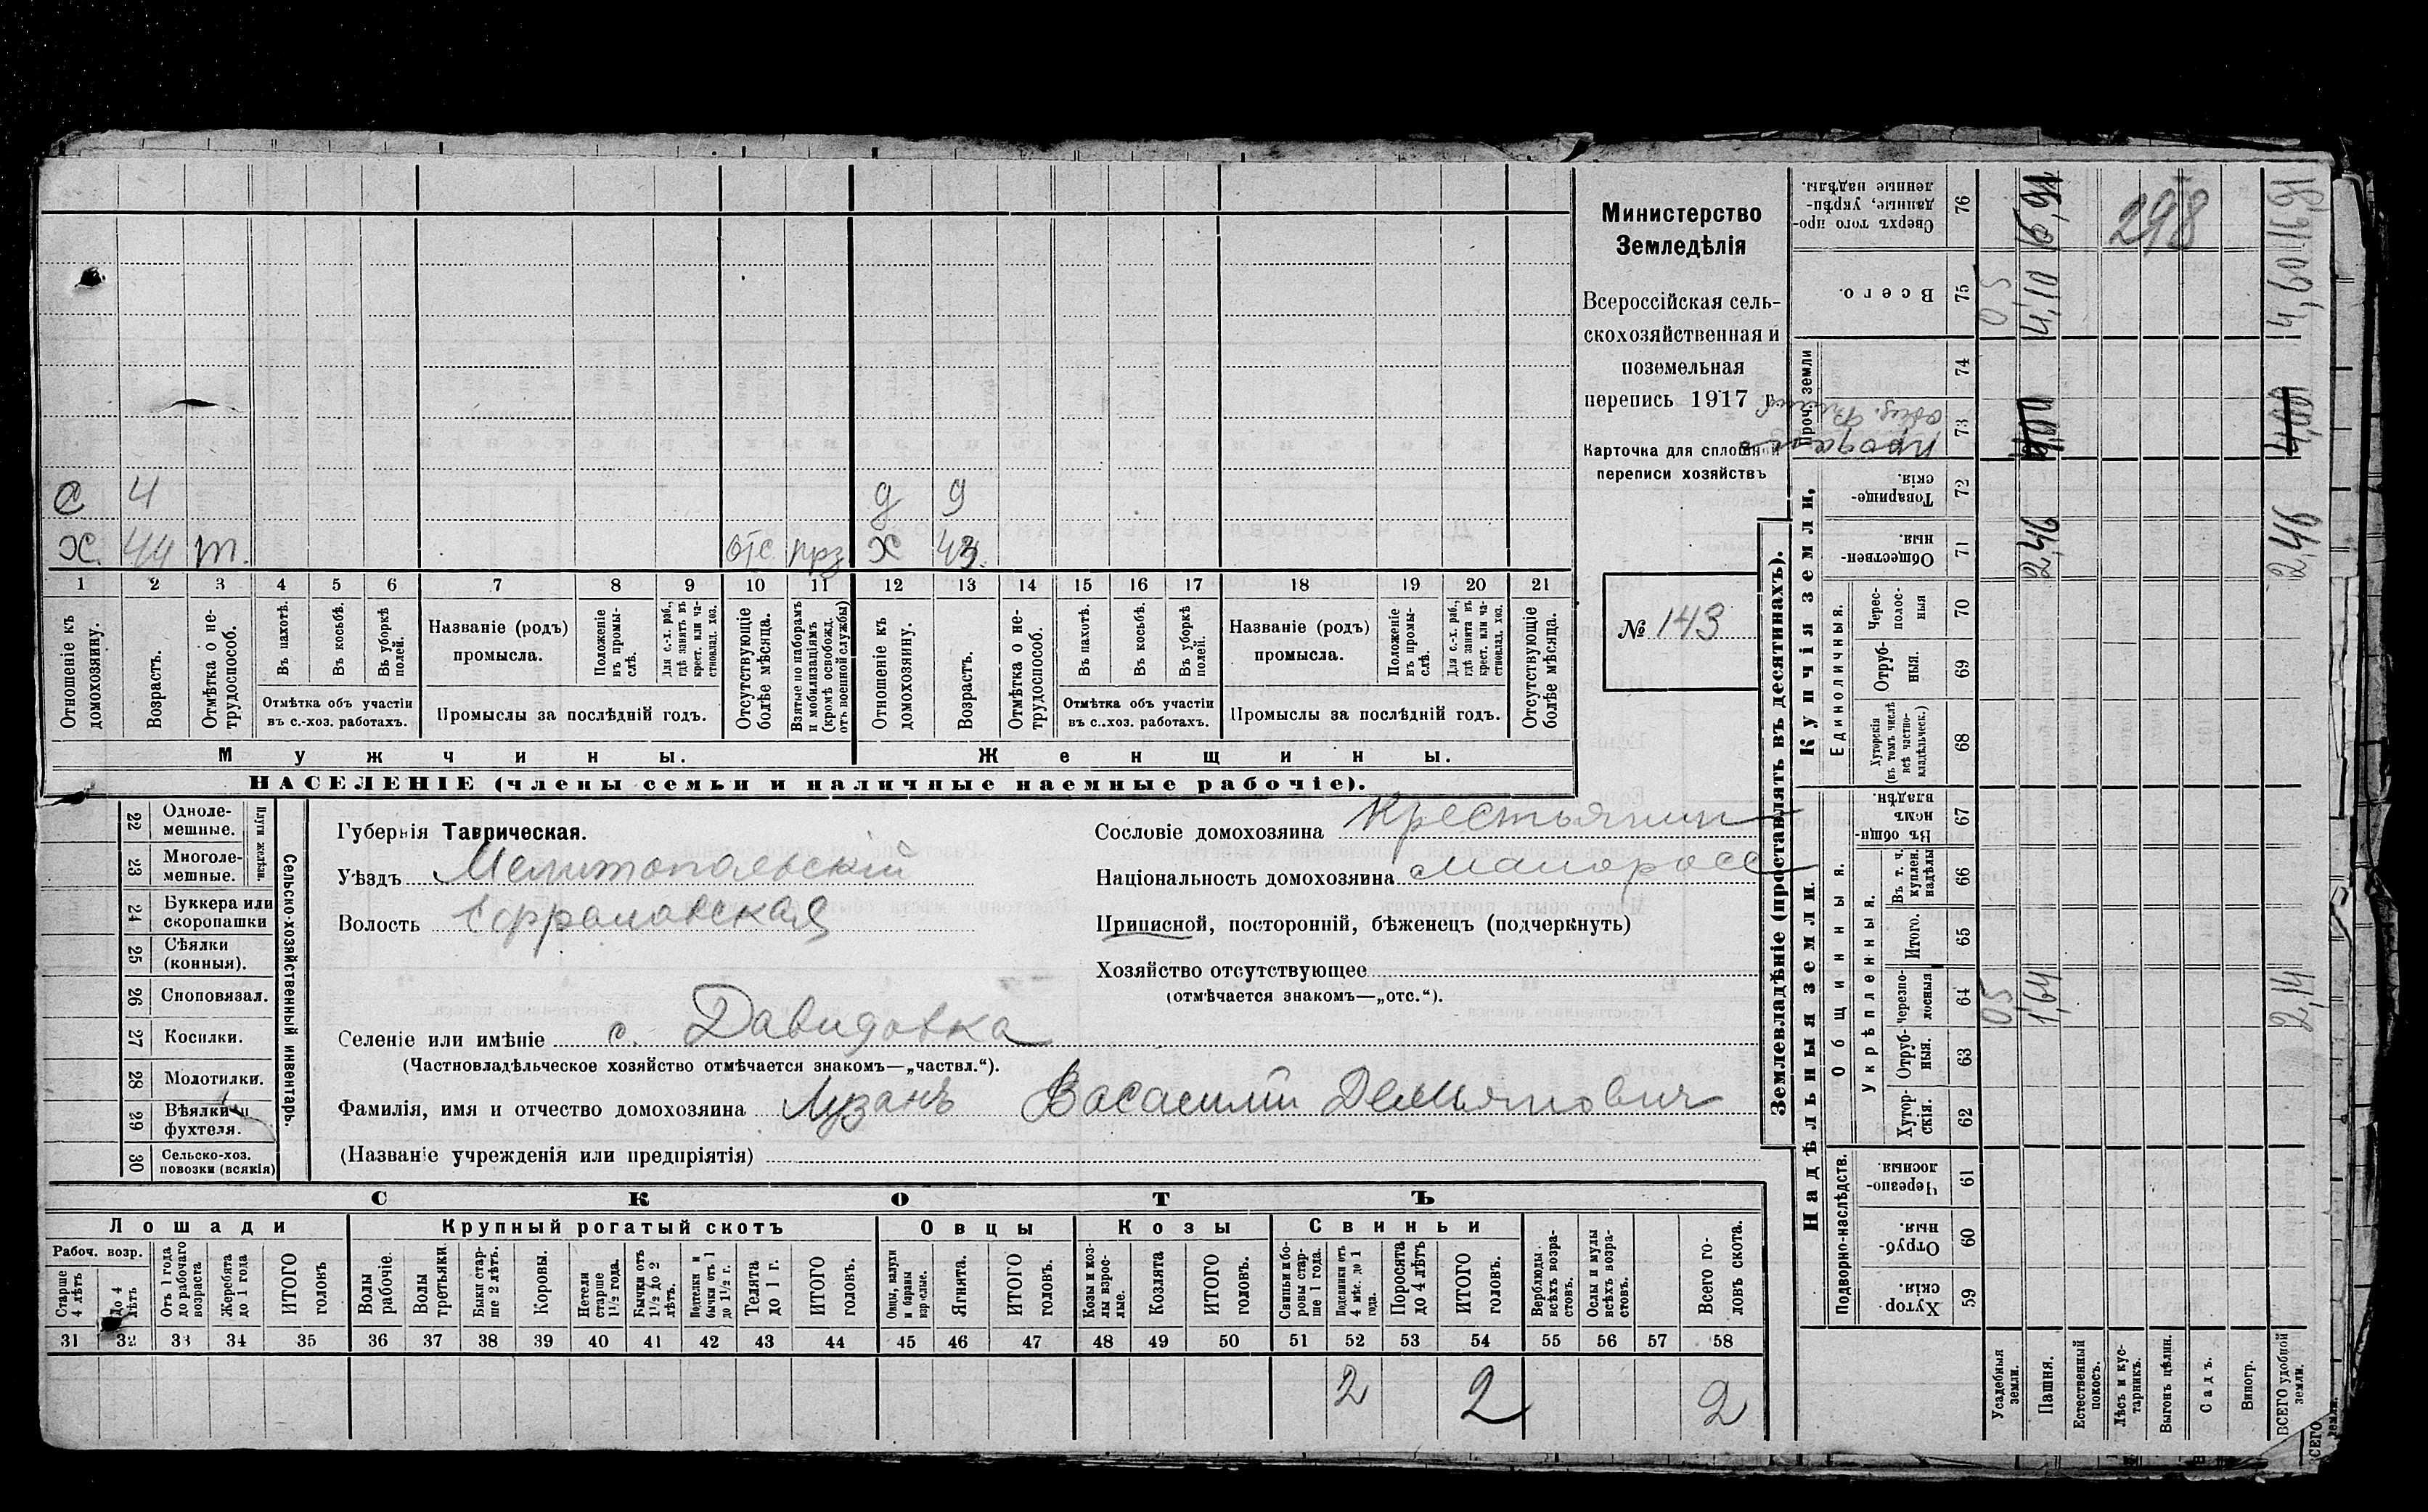 С 4 д 9
Х. 44 т. отс прз Х 43.
1 2 3 4 5 6 7 8 9 10 11 12 13 14 15 16 17 18 19 20 21
Отношеніе къ домохозяину.
Возрастъ.
Отмѣтка о не-
трудоспособ.
Въ пахотѣ.
Въ косьбѣ.
Въ уборкѣ
полей.
Отмѣтка объ участіи
въ с.-хоз. работахъ.
Названіе (родъ)
промысла.
Положеніе
въ промы-
слѣ.
Для с.-х. раб.,
гдѣ занятъ въ
крест. или ча-
стновлад. хоз.
Промыслы за послѣдній годъ.
Отсутствующіе
болѣе мѣсяца.
Взятые по наборамъ
и мобилизаціямъ
(кромѣ освобожд.
отъ военной службы)
Отношеніе къ
домохозяину.
Возрастъ.
Отмѣтка о не-
трудоспособ.
Въ пахотѣ.
Въ косьбѣ.
Въ уборкѣ
полей.
Отмѣтка объ участіи
въ с.-хоз. работахъ.
Названіе (родъ)
промысла.
Положеніе
въ промы-
слѣ.
Для с.-х. раб.,
гдѣ занята въ
крест. или ча-
стновлад. хоз.
Промыслы за послѣдній годъ.
Отсутствующіе
болѣе мѣсяца.
Мужчины.
Женщины.
НАСЕЛЕНІЕ (члены семьи и наличные наемные рабочіе).
Министерство
Земледѣлія
Всероссійская сель-
скохозяйственная и
поземельная
перепись 1917 г.
Карточка для сплошной
переписи хозяйствъ
№ 143
22 Одноле-
мешные.
23 Многоле-
мешные.
Плуги желѣзн.
24 Буккера или
скоропашки
25 Сѣялки
(конныя).
26 Сноповязал.
27 Косилки.
28 Молотилки.
29 Вѣялки и
фухтеля.
30 Сельско-хоз.
повозки (всякія)
Сельско-хозяйственный инвентарь.
Губернія Таврическая.
Уѣздъ Мелитопольскій
Волость Ефремовская
Селеніе или имѣніе с. Давидовка
(Частновладѣльческое хозяйство отмѣчается знакомъ—„частвл.“).
Фамилія, имя и отчество домохозяина Лузанъ Васасилій Демьяновичъ
(Названіе учрежденія или предпріятія)
Сословіе домохозяина Крестьянин
Національность домохозяина малоросс
Приписной, посторонній, бѣженецъ (подчеркнуть)
Хозяйство отсутствующее
(отмѣчается знакомъ—„отс.“).
СКОТЪ
Лошади
Крупный рогатый скотъ
Овцы
Козы
Свиньи
Рабоч. возр.
Старше
4 лѣтъ
До 4
лѣтъ
Отъ 1 года
до рабочаго
возраста
Жеребята
до 1 года
ИТОГО
головъ
Волы
рабочіе.
Волы
третьяки
Быки стар-
ше 2 лѣтъ.
Коровы.
Нетели
старше
1½ года.
Бычки отъ
1½ до 2
лѣтъ.
Подтелки и
бычки отъ 1
до 1½ г.
Телята
до 1 г.
ИТОГО
головъ.
Овцы, валухи
и бараны
взрослые.
Ягнята.
ИТОГО
головъ.
Козы и коз-
лы взрос-
лые.
Козлята
ИТОГО
головъ.
Свиньи и бо-
ровы стар-
ше 1 года.
Подсвинки отъ
4 мѣс. до 1
года.
Поросята
до 4 лѣтъ
ИТОГО
головъ.
Верблюды
всѣхъ возра-
стовъ.
Ослы и мулы
всѣхъ возра-
стовъ.
Всего го-
ловъ скота.
31 32 33 34 35 36 37 38 39 40 41 42 43 44 45 46 47 48 49 50 51 52 53 54 55 56 57 58
2 2 2
Землевладѣніе (проставлять въ десятинахъ).
Надѣльныя земли.
Купчія земли,
Проч. земли
Подворно-наслѣдств.
Общинныя.
Укрѣпленныя.
Единоличныя.
Хутор-
скія 59
Отруб-
ныя. 60
Черезпо-
лосныя. 61
Хутор-
скія. 62
Отруб-
ныя. 63
Черезпо-
лосныя 64
Итого. 65
Въ т. ч.
куплен.
надѣлы 66
Въ общин-
номъ
владѣн. 67
Хуторскія
(въ томъ числѣ
всѣ частно-
владѣльческ.) 68
Отруб-
ныя. 69
Черес-
полос-
ныя 70
Обществен-
ныя. 71
Товарище-
скія. 72
73
74
Всего. 75
Сверхъ того про-
данные, укрѣп-
ленные надѣлы. 76
Усадебныя
земли.
Пашня.
Естественный
покосъ.
Лѣсъ и кус-
тарникъ.
Выгонъ цѣлин.
Садъ.
Виногр.
ВСЕГО удобной
земли.
05 05
1,64 2,46 4,00 4,10 16,91
298
2,14 2,46 4,00 4,60 16,91